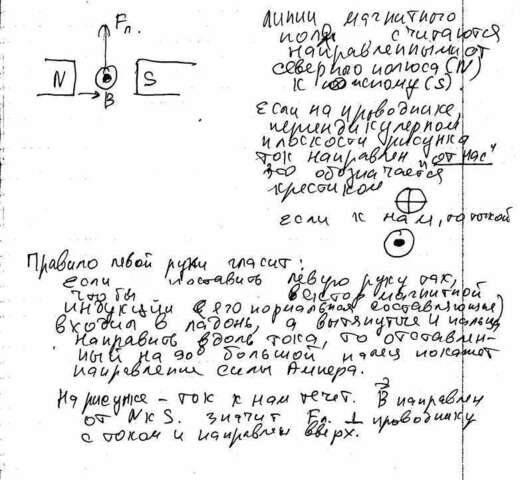 Fл.
N
S
B
Линии магнитного
поля считаются
направленными от
северного полюса (N)
к южному (S).
Если на проводнике,
перпендикулярном
плоскости рисунка
ток направлен "от нас"
это обозначается
крестиком
если к нам, то точкой
Правило левой руки гласит:
если поставить левую руку так,
чтобы вектор магнитной
индукции (его нормальная составляющая)
входил в ладонь, а вытянутые пальцы
направить вдоль тока, то отставлен-
ный на 90° большой палец покажет
направление силы Ампера.
На рисунке - ток к нам течет. B направлен
от N к S. значит Fл. ⊥ проводнику
с током и направлен вверх.